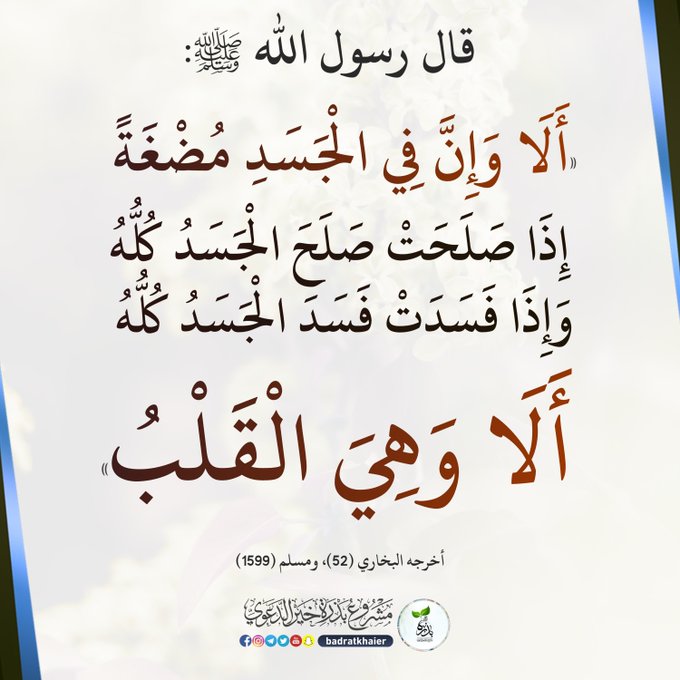 قال رسول الله ﷺ:
«أَلَا وَإِنَّ فِي الْجَسَدِ مُضْغَةً
إِذَا صَلَحَتْ صَلَحَ الْجَسَدُ كُلُّهُ
وَإِذَا فَسَدَتْ فَسَدَ الْجَسَدُ كُلُّهُ
أَلَا وَهِيَ الْقَلْبُ»
أخرجه البخاري (52)، ومسلم (1599)
مشروع بذرة خير الدعوي
badratkhaier